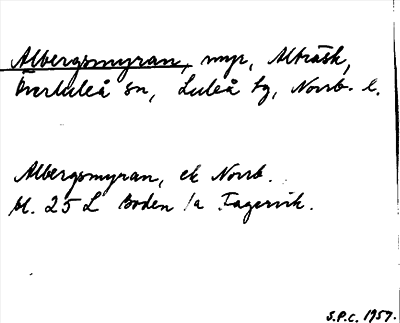 Albergsmyran, myr, Alträsk,
Överluleå sn, Luleå tg, Norrb. l.
Albergsmyran, ek Norrb.
bl. 25 L Boden /a Fagervik.
S.P.C. 1957.